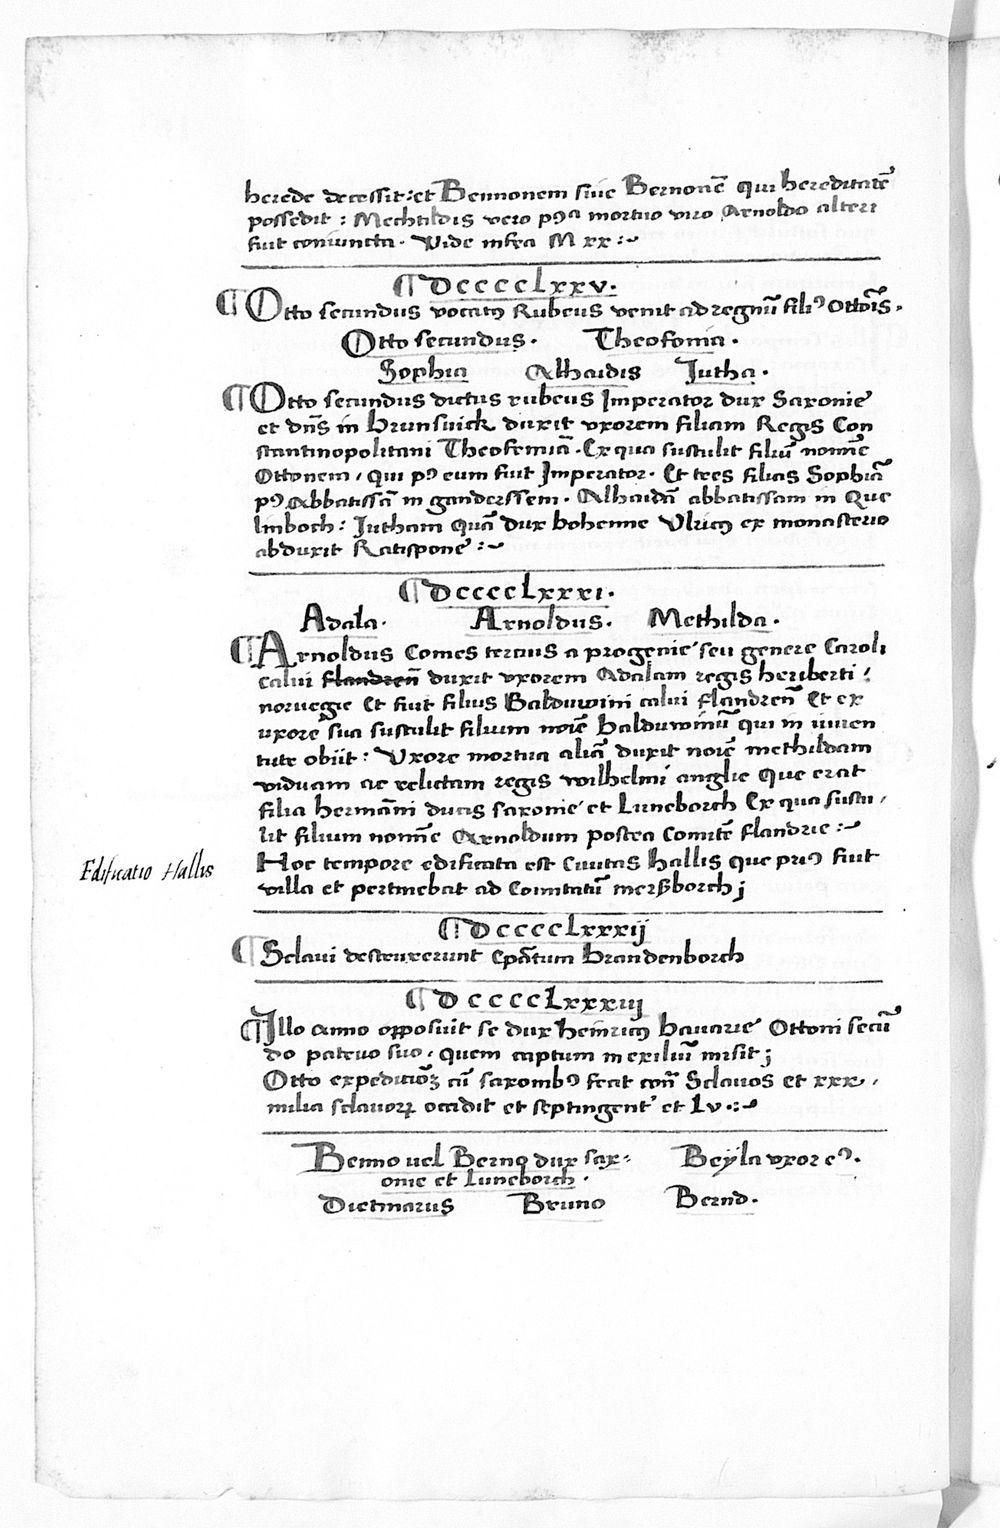 herede decessit : et Bennonem siue Bernonē qui hereditatē
possedit : Mechtildis vero pꝰ mortuo viro Arnoldo alteri
fuit coniuncta . Vide infra M xx :~
¶ Dcccclxxv .
¶ Otto secundus vocatꝰ Rubeus venit ad regnū filiꝰ Ottoīs .
Otto secundus . Theofonia .
Sophia Alhaidis Jutha .
¶ Otto secundus dictus rubeus Imperator dux Saxonie
et dn̄s in brunsuick duxit vxorem filiam Regis Con
stantinopolitani Theofoniā . Ex qua sustulit filiū nomīe
Ottonem / qui pꝰ eum fuit Imperator . Et tres filias Sophiā
pꝰ Abbatissā in ganderssem . Alhaidā abbatissam in Que
linboch : Jutham quā dux bohemie Vlricꝰ ex monasterio
abduxit Ratispone :~
¶ Dcccclxxxi .
Adala . Arnoldus . Methilda .
¶ Arnoldus Comes tercius a progenie seu genere Caroli
calui flandreñ duxit vxorem Adalam regis heriberti /
noruegie Et fuit filius Balduwini calui flandreñ Et ex
uxore sua sustulit filium noīe balduwinū qui in iuuen
tute obijt : Vxore mortua aliā duxit noīe methildam
viduam ac relictam regis wilhelmi anglie Que erat
filia hermāni ducis saxonie et Luneborch Ex qua sustu /
lit filium nomīe Arnoldum postea Comitē flandrie :~
Edificatio Hallis
Hoc tempore edificata est Ciuitas hallis que priꝰ fuit
villa et pertinebat ad Comitatū merßborch ;
¶ Dcccclxxxij
¶ Sclaui destruxerunt Ep̄atum brandenborch
¶ Dcccclxxxiij
¶ Illo anno opposuit se dux heinricꝰ bauarie Ottoni secū
do patruo suo / quem captum in exiliū misit ;
Otto expeditioꝫ cū saxonibꝰ fecit con̄ Sclauos et xxx /
milia sclauoꝝ occidit et septingent' et Lv .:~
Benno uel Berno dux sax= Beÿla vxor eꝰ .
onie et Luneborch .
Dietmarus Bruno Bernd .